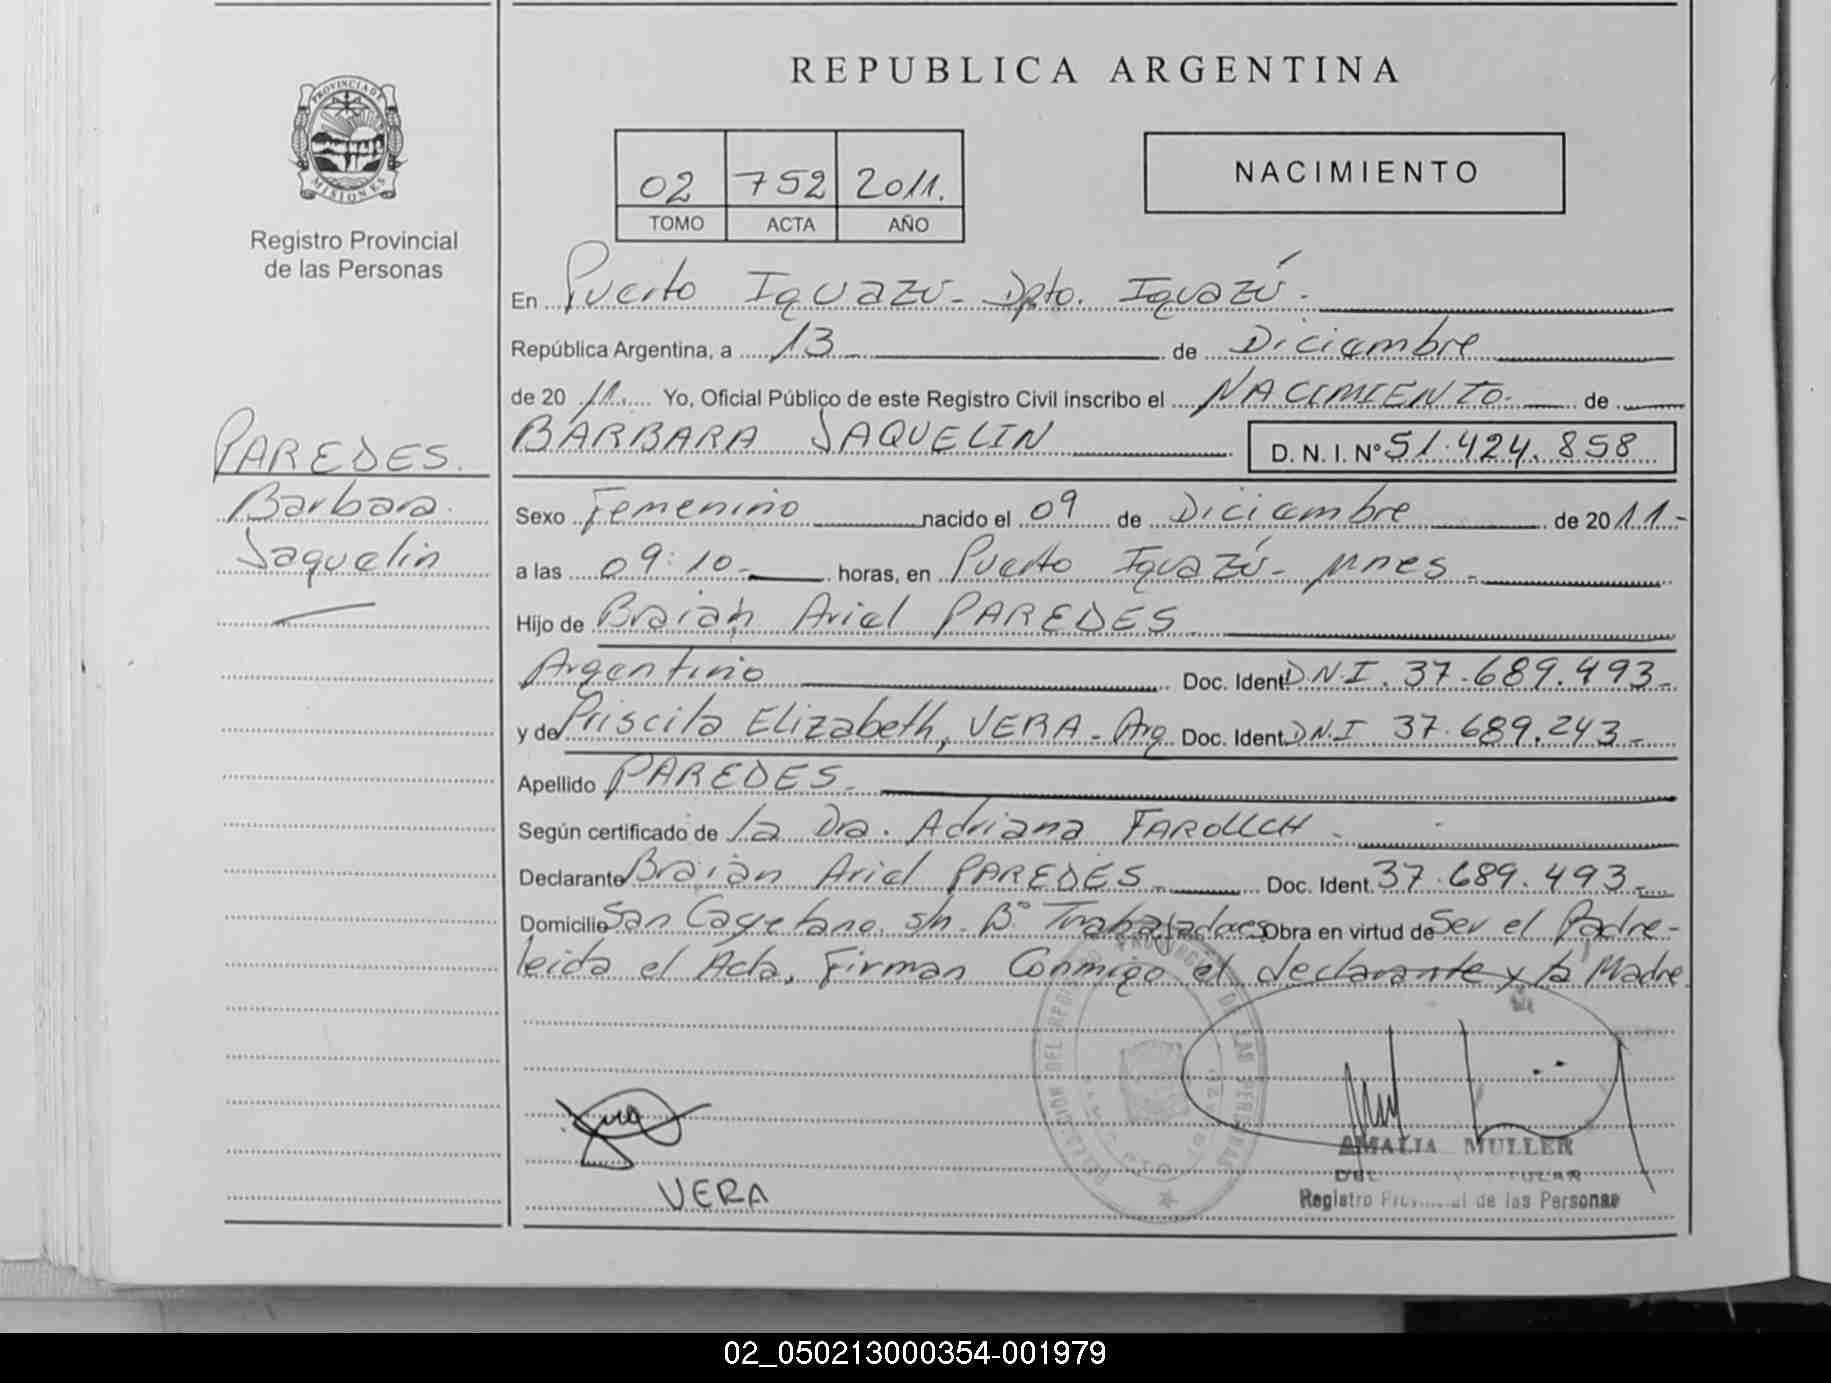 REPUBLICA ARGENTINA
PROVINCIA DE
MISIONES
Registro Provincial
de las Personas
02 752 2011.
TOMO ACTA AÑO
NACIMIENTO
En Puerto Iguazú - Dpto. Iguazú.
República Argentina, a 13 de Diciembre
de 20 11. Yo, Oficial Público de este Registro Civil inscribo el NACIMIENTO. de
BARBARA JAQUELIN D. N. I. Nº 51.424.858
PAREDES.
Barbara.
Jaquelin
Sexo Femenino nacido el 09 de Diciembre de 2011-
a las 09:10- horas, en Puerto Iguazú - Mnes -
Hijo de Braian Ariel PAREDES
Argentino Doc. Ident. D.N.I. 37.689.493-
y de Priscila Elizabeth, VERA - Arg Doc. Ident. D.N.I 37.689.243-
Apellido PAREDES.
Según certificado de la Dra. Adriana
Declarante Braian Ariel PAREDES Doc. Ident. 37.689.493-
Domicilio San Cayetano s/n. Bº Trabajadores Obra en virtud de Ser el Padre-
leida el Acta, Firman Conmigo el declarante y la Madre
VERA
AMALIA MULLER
Registro de las Personas
02_050213000354-001979